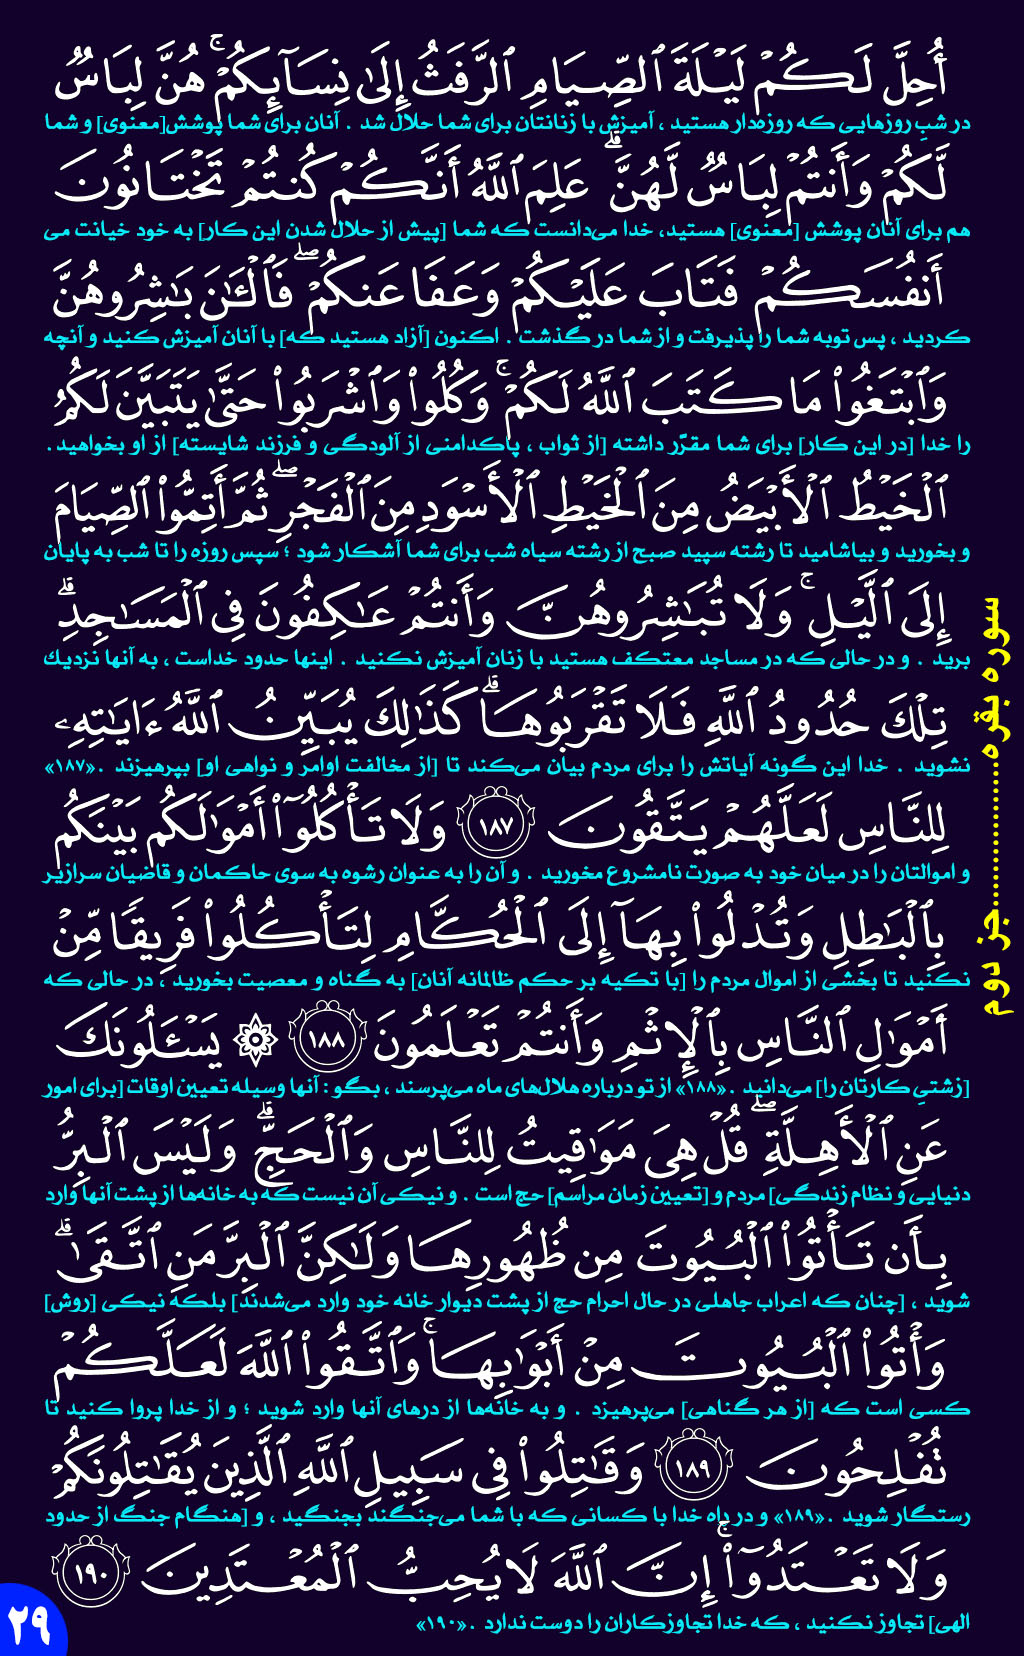 أُحِلَّ لَكُمْ لَيْلَةَ ٱلصِّيَامِ ٱلرَّفَثُ إِلَىٰ نِسَآئِكُمْ ۚ هُنَّ لِبَاسٌ
در شبِ روزهایی که روزه‌دار هستید ، آمیزش با زنانتان برای شما حلال شد . آنان برای شما پوشش[معنوی] و شما
لَّكُمْ وَأَنتُمْ لِبَاسٌ لَّهُنَّ ۗ عَلِمَ ٱللَّهُ أَنَّكُمْ كُنتُمْ تَخْتَانُونَ
هم برای آنان پوشش [معنوی] هستید، خدا می‌دانست که شما [پیش از حلال شدن این کار] به خود خیانت می
أَنفُسَكُمْ فَتَابَ عَلَيْكُمْ وَعَفَا عَنكُمْ ۖ فَٱلْـَٰٔنَ بَـٰشِرُوهُنَّ
کردید ، پس توبه شما را پذیرفت و از شما در گذشت . اکنون [آزاد هستید که] با آنان آمیزش کنید و آنچه
وَٱبْتَغُوا۟ مَا كَتَبَ ٱللَّهُ لَكُمْ ۚ وَكُلُوا۟ وَٱشْرَبُوا۟ حَتَّىٰ يَتَبَيَّنَ لَكُمُ
را خدا [در این کار] برای شما مقرّر داشته [از ثواب ، پاکدامنی از آلودگی و فرزند شایسته] از او بخواهید .
ٱلْخَيْطُ ٱلْأَبْيَضُ مِنَ ٱلْخَيْطِ ٱلْأَسْوَدِ مِنَ ٱلْفَجْرِ ۖ ثُمَّ أَتِمُّوا۟ ٱلصِّيَامَ
و بخورید و بیاشامید تا رشته سپید صبح از رشته سیاه شب برای شما آشکار شود ؛ سپس روزه را تا شب به پایان
إِلَى ٱلَّيْلِ ۚ وَلَا تُبَـٰشِرُوهُنَّ وَأَنتُمْ عَـٰكِفُونَ فِى ٱلْمَسَـٰجِدِ ۗ
برید . و در حالی که در مساجد معتکف هستید با زنان آمیزش نکنید . اینها حدود خداست ، به آنها نزدیك
تِلْكَ حُدُودُ ٱللَّهِ فَلَا تَقْرَبُوهَا ۗ كَذَٰلِكَ يُبَيِّنُ ٱللَّهُ ءَايَـٰتِهِۦ
نشوید . خدا این گونه آیاتش را برای مردم بیان می‌کند تا [از مخالفت اوامر و نواهی او] بپرهیزند .«۱۸۷»
لِلنَّاسِ لَعَلَّهُمْ يَتَّقُونَ ١٨٧ وَلَا تَأْكُلُوٓا۟ أَمْوَٰلَكُم بَيْنَكُم
و اموالتان را در میان خود به صورت نامشروع مخورید . و آن را به عنوان رشوه به سوی حاکمان و قاضیان سرازیر
بِٱلْبَـٰطِلِ وَتُدْلُوا۟ بِهَآ إِلَى ٱلْحُكَّامِ لِتَأْكُلُوا۟ فَرِيقًا مِّنْ
نکنید تا بخشی از اموال مردم را [با تکیه بر حکم ظالمانه آنان] به گناه و معصیت بخورید ، در حالی که
أَمْوَٰلِ ٱلنَّاسِ بِٱلْإِثْمِ وَأَنتُمْ تَعْلَمُونَ ١٨٨ ۞ يَسْـَٔلُونَكَ
[زشتیِ کارتان را] می‌دانید .«۱۸۸» از تو درباره هلال‌های ماه می‌پرسند ، بگو : آنها وسیله تعیین اوقات [برای امور
عَنِ ٱلْأَهِلَّةِ ۖ قُلْ هِىَ مَوَٰقِيتُ لِلنَّاسِ وَٱلْحَجِّ ۗ وَلَيْسَ ٱلْبِرُّ
دنیایی و نظام زندگی] مردم و [تعیین زمان مراسم] حج است . و نیکی آن نیست که به خانه‌ها از پشت آنها وارد
بِأَن تَأْتُوا۟ ٱلْبُيُوتَ مِن ظُهُورِهَا وَلَـٰكِنَّ ٱلْبِرَّ مَنِ ٱتَّقَىٰ ۗ
شوید ، [چنان که اعراب جاهلی در حال احرام حج از پشت دیوار خانه خود وارد می‌شدند] بلکه نیکی [روش]
وَأْتُوا۟ ٱلْبُيُوتَ مِنْ أَبْوَٰبِهَا ۚ وَٱتَّقُوا۟ ٱللَّهَ لَعَلَّكُمْ
کسی است که [از هر گناهی] می‌پرهیزد . و به خانه‌ها از درهای آنها وارد شوید ؛ و از خدا پروا کنید تا
تُفْلِحُونَ ١٨٩ وَقَـٰتِلُوا۟ فِى سَبِيلِ ٱللَّهِ ٱلَّذِينَ يُقَـٰتِلُونَكُمْ
رستگار شوید .«۱۸۹» و در راه خدا با کسانی که با شما می‌جنگند بجنگید ، و [هنگام جنگ از حدود
وَلَا تَعْتَدُوٓا۟ ۚ إِنَّ ٱللَّهَ لَا يُحِبُّ ٱلْمُعْتَدِينَ ١٩٠
الهی] تجاوز نکنید ، که خدا تجاوزکاران را دوست ندارد .«۱۹۰»
سوره بقره....................جز دوم
۲۹